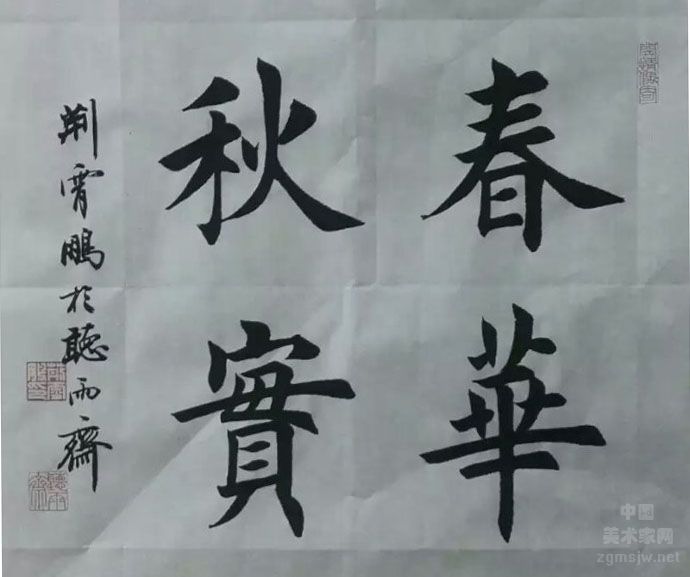 春華
秋實
荆霄鵬於聽雨齋
中国
美术家网
zgmsjw.net